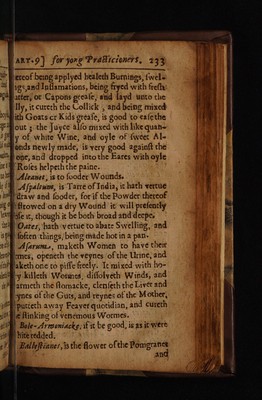 ART. 9] for yong Practicioners. 233
ereof being applyed healeth Burnings, swel-
ngs, and Inflamations, being fryed with fresh
utter, or Capons grease, and layd unto the
lly, it cureth the Collick, and being mixed
ith Goats or Kids grease, is good to ease the
out; the Juyce also mixed with like quan-
y of white Wine, and oyle of sweet Al-
onds newly made, is very good against the
one, and dropped into the Eares with oyle
Roses helpeth the paine.
Aleanes, is to sooder Wounds.
Aspaltum, is Tarre of India, it hath vertue
draw and sooder, for if the Powder thereof
strowed on a dry Wound it will presently
ose it, though it be both broad and deepe.
Oates, hath vertue to abate Swelling, and
soften things, being made hot in a pan.
Asarum, maketh Women to have their
rmes, openeth the veynes of the Urine, and
aketh one to pisse freely. It mixed with ho-
y killeth Wormes, dissolveth Winds, and
armeth the stomacke, clenseth the Liver and
ynes of the Guts, and reynes of the Mother,
putteth away Feaver quotidian, and cureth
e stinking of venemous Wormes.
Bole-Armeniacke, if it be good, is as it were
hite redded.
Ballestianes, is the flower of the Pomgranet
and